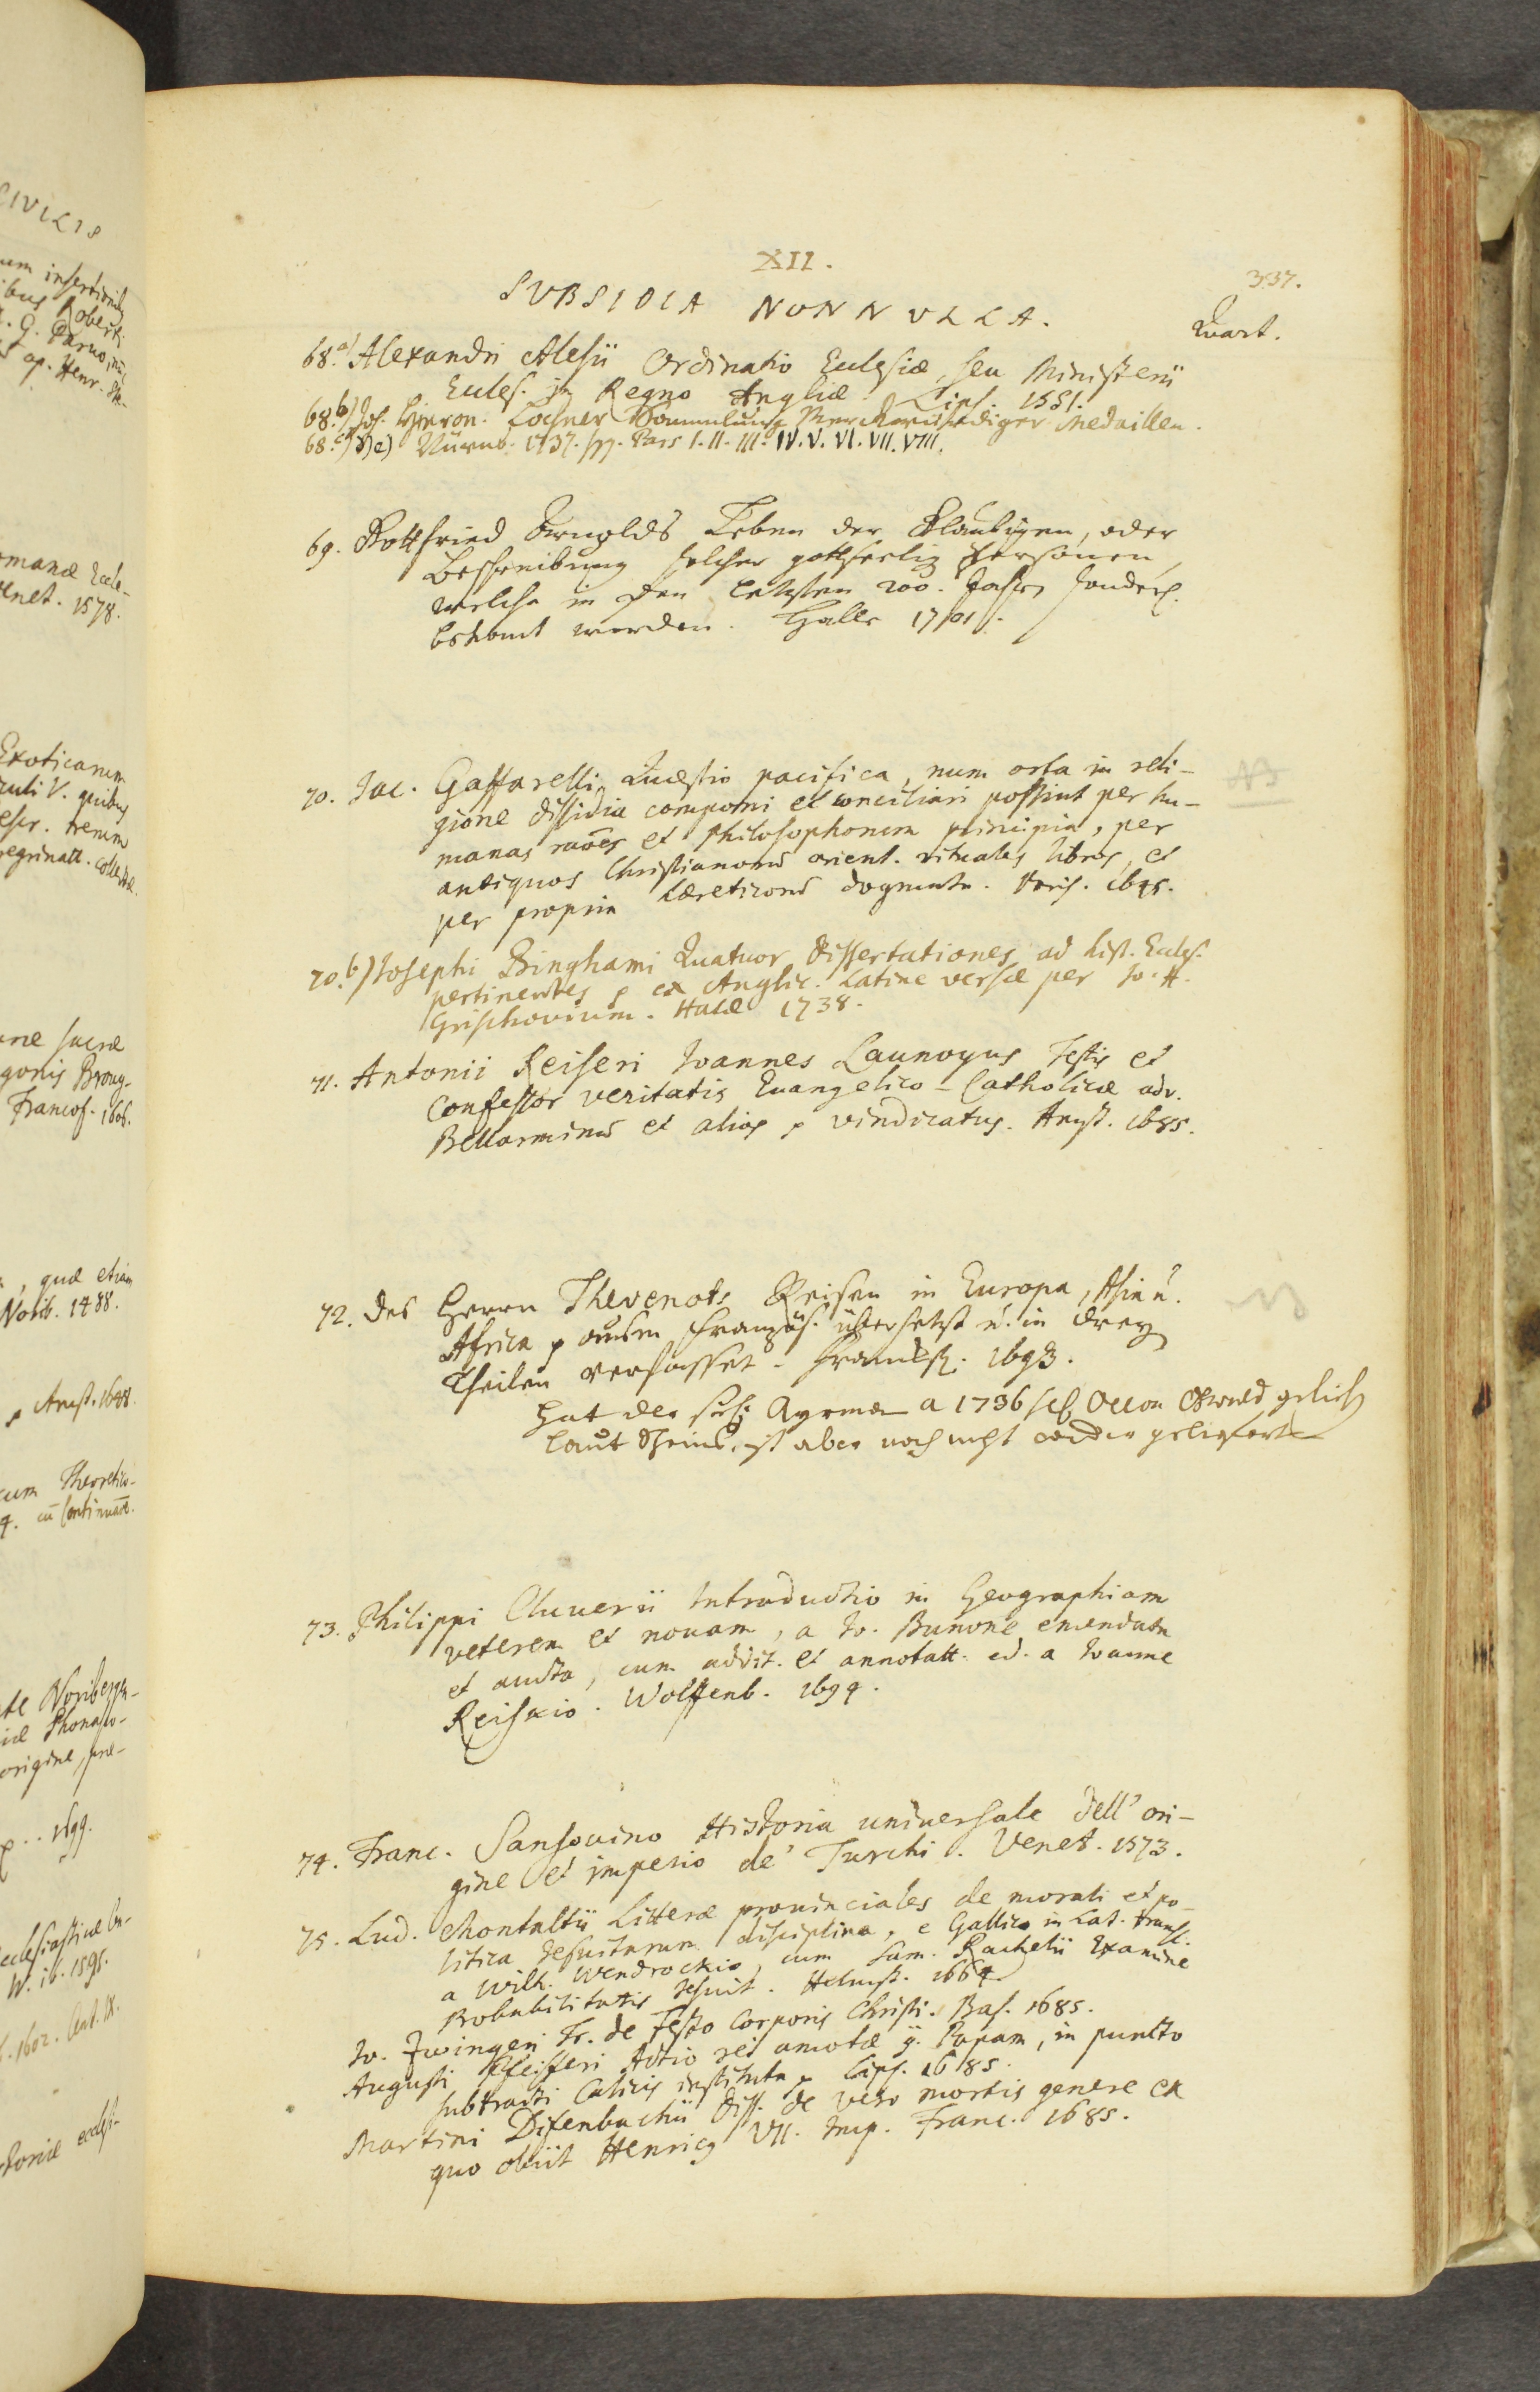 CIVILIS
um insertionib
ibus Roberti
G. Parvo, nec
ap. Henr. Ste-
omanæ Eccle-
enet. 1578.
Exoticarum
culi V. quibus
escr. rerum
regrinatt. collectæ
sacræ
gonis Broug-
Francof. 1606.
, quæ etiam
Norib. 1488.
Amst. 1648.
cum Theoretico-
4. cū Continuat.
Noriberga-
origine, præ-
1699.
ecclesiasticæ
W. ib. 1595.
1602.
toriæ ecclesi-
XII.
337.
SUBSIDIA NONNULLA.
Quart.
68.a) Alexandri Alesii Ordinatio Ecclesiæ, seu Ministerii
Eccles. in Regno Angliæ. Lips. 1551.
68.b) Joh. Hieron. Lochner Sammlung Merckwürdiger Medaillen.
68.c) d) e) Nürnb. 1737. sqq. Pars I. II. III. IV. V. VI. VII. VIII.
69. Gottfried Arnolds Leben der Gläubigen, oder
Beschreibung solcher gottseelig Personen,
welche in den letzten 200. Jahren sonderl.
bekannt worden. Halle 1701.
70. Jac. Gaffarelli Quæstio pacifica, num orta in reli-
gione dissidia componi et conciliari possint per hu-
manas raōes et Philosophorum principia, per
antiquos Christianorum orient. rituales libros, et
per propria hæreticorum dogmata. Paris. 1645.
NB
70.b) Josephi Binghami Quatuor Dissertationes ad hist. Eccles.
pertinentes ex Anglic. Latine versæ per Jo. H.
Grischovium. Halæ 1738.
71. Antonii Reiseri Joannes Launoyus Testis et
Confessor veritatis Evangelico-Catholicæ adv.
Bellarminum et alios vindicatus. Amst. 1685.
72. Des Herrn Thevenots Reisen in Europa, Asia u.
Africa aus dem Französ. übersetzt u. in drey
Theilen verfasset. Franckf. 1693.
NB
Hat der a 1736 gelieh
laut Schein, ist aber noch nicht wieder geliefert
73. Philippi Cluverii Introductio in Geographiam
veterem et novam, a Jo. Bunone emendata
et aucta, cum addit. et annotatt. ed. a Joanne
Reiskio. Wolffenb. 1694.
74. Franc. Sansovino Historia universale dell' ori-
gine et imperio de' Turchi. Venet. 1573.
75. Lud. Montaltii Litteræ provinciales de morali et po-
litica Jesuitarum disciplina, e Gallico in Lat. transl.
a Wilh. Wendrockio, cum Sam. Rachelii Examine
Probabilitatis Jesuit. Helmst. 1664.
Jo. Zwingeri Tr. de Festo Corporis Christi. Bas. 1685.
Augusti Pfeifferi Actio rei amotæ g. Papam, in puncto
subtracti Calicis instituta Lips. 1685.
Martini Difenbachii Diss. de vero mortis genere ex
quo obiit Henricg VII. Imp. Franc. 1685.